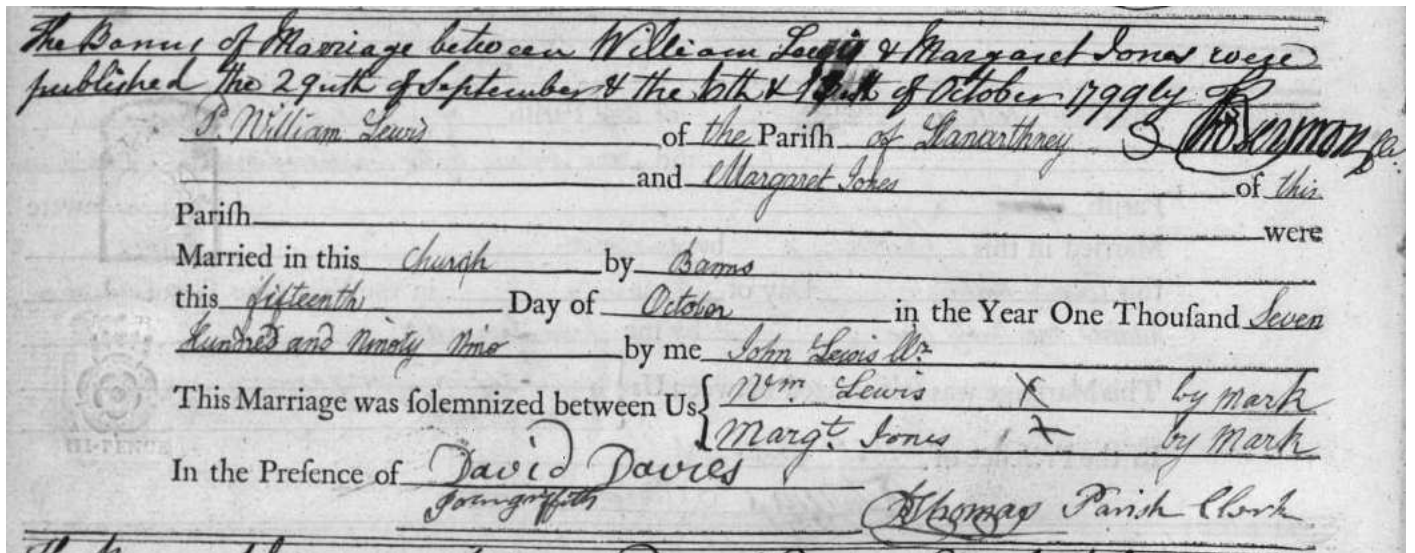 The Banns of Marriage between William Lewis & Margaret Jones were
published the 29nth of September & the 6th & 13th of October 1799 by
William Lewis of the Pariſh of Llanarthney
and Margaret Jones of this
Pariſh were
Married in this Church by Banns
this fifteenth Day of October in the Year One Thouſand Seven
Hundred and Ninety Nine by me John Lewis
This Marriage was ſolemnized between Us { Wm. Lewis X by mark
Margt. Jones X by mark
In the Preſence of David Davies
Thomas Parish Clerk